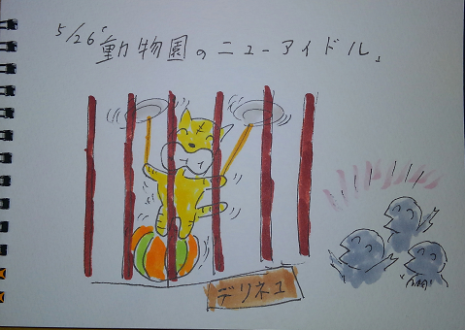 5/26「動物園のニューアイドル」
デリネコ